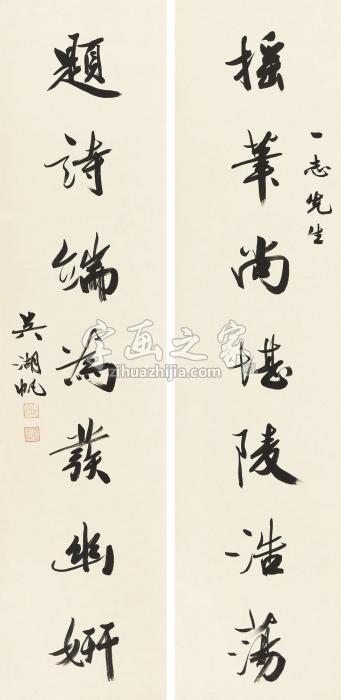 一志先生
搖筆尚堪陵浩蕩
題詩端為發幽妍
吳湖帆
字画之家
zihuazhijia.com